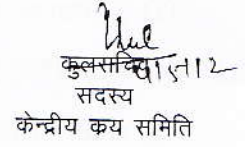 कुलसचिव
सदस्य
केन्द्रीय क्रय समिति